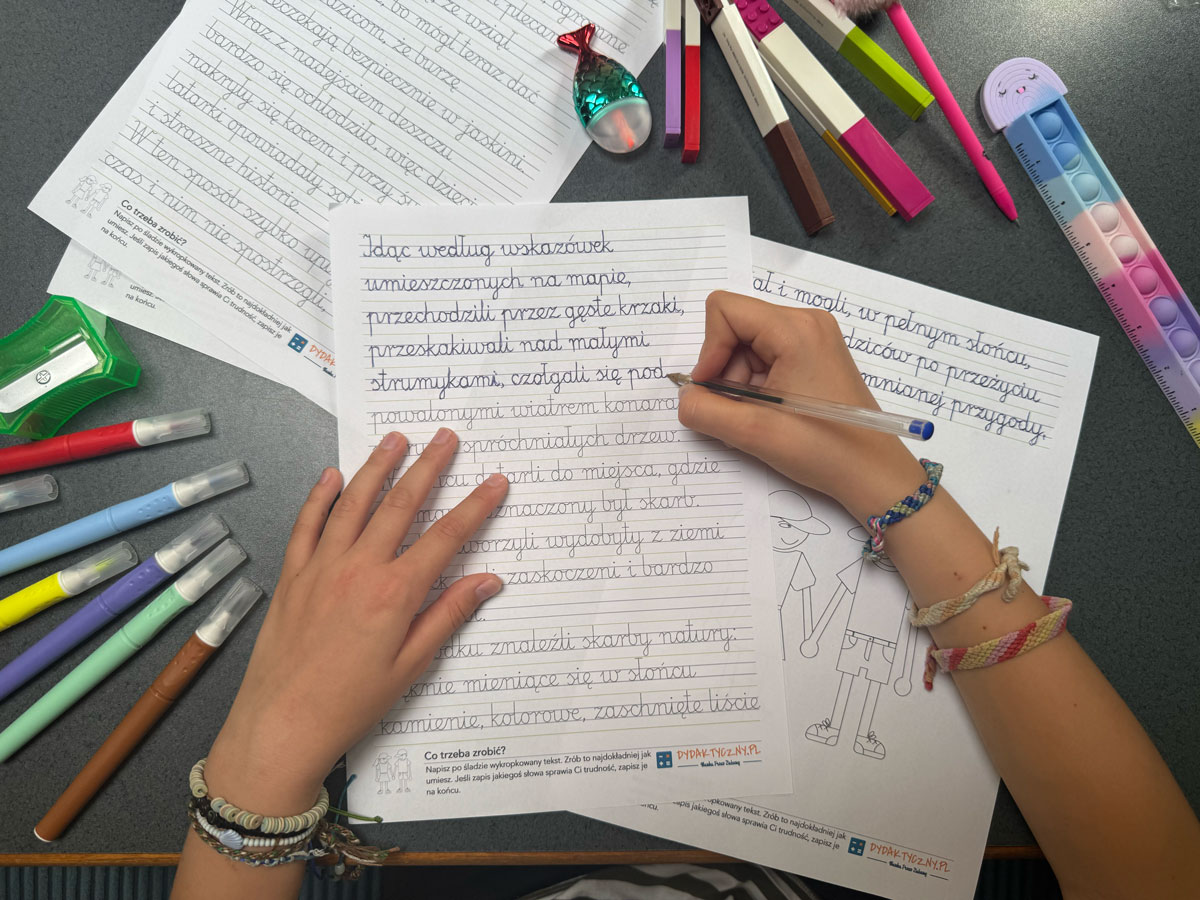 ognanie
niecam
że wziął
bo mógł teraz dać
dzicom, że burzę
eczekają bezpiecznie w jaskini.
Wraz z nadejściem deszczu
bardzo się ochłodziło, więc dzieci
nakryły się kocem i przy
latarki opowiadały
i straszne historie.
W ten sposób szybko
czas i nim nie spostrzegli,
Co trzeba zrobić?
Napisz po śladzie wykropkowany tekst. Zrób to najdokładniej jak
umiesz. Jeśli zapis jakiegoś słowa sprawia Ci trudność, zapisz je
na końcu.
umiesz.
na końcu.
Idąc według wskazówek
umieszczonych na mapie,
przechodzili przez gęste krzaki,
przeskakiwali nad małymi
strumykami, czołgali się pod
powalonymi wiatrem konara
spróchniałych drzew.
cu dotarli do miejsca, gdzie
znaczony był skarb.
worzyli wydobyty z ziemi
zaskoczeni i bardzo
dku znaleźli skarby natury:
knie mieniące się w słońcu
kamienie, kolorowe, zaschnięte liście
Co trzeba zrobić?
Napisz po śladzie wykropkowany tekst. Zrób to najdokładniej jak
umiesz. Jeśli zapis jakiegoś słowa sprawia Ci trudność, zapisz je
na końcu.
DYDAKTYCZNY.PL
Nauka Przez Zabawę
ał i mogli, w pełnym słońcu,
dziców po przeżyciu
mnianej przygody.
kropkowany tekst. Zrób to najdokładniej jak
zapis jakiegoś słowa sprawia Ci trudność, zapisz je
DYDAKTYCZNY.PL
Nauka Przez Zabawę